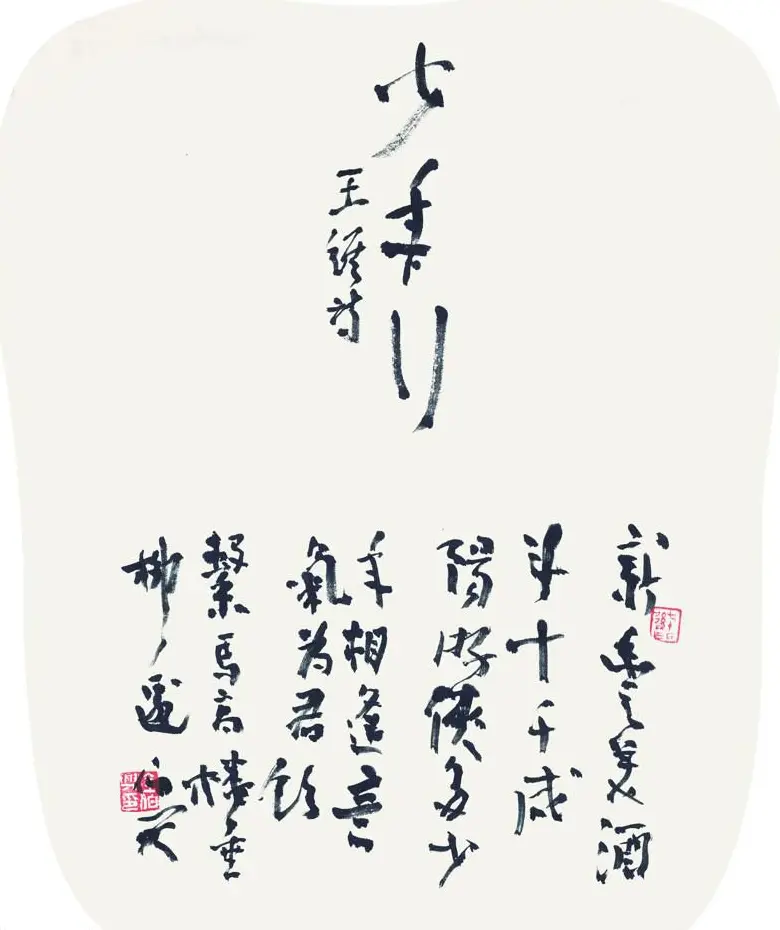 少年行
王維詩
新豐美酒
斗十千咸
陽游俠多少
年相逢意
氣為君飲
繫馬高樓垂
柳邊